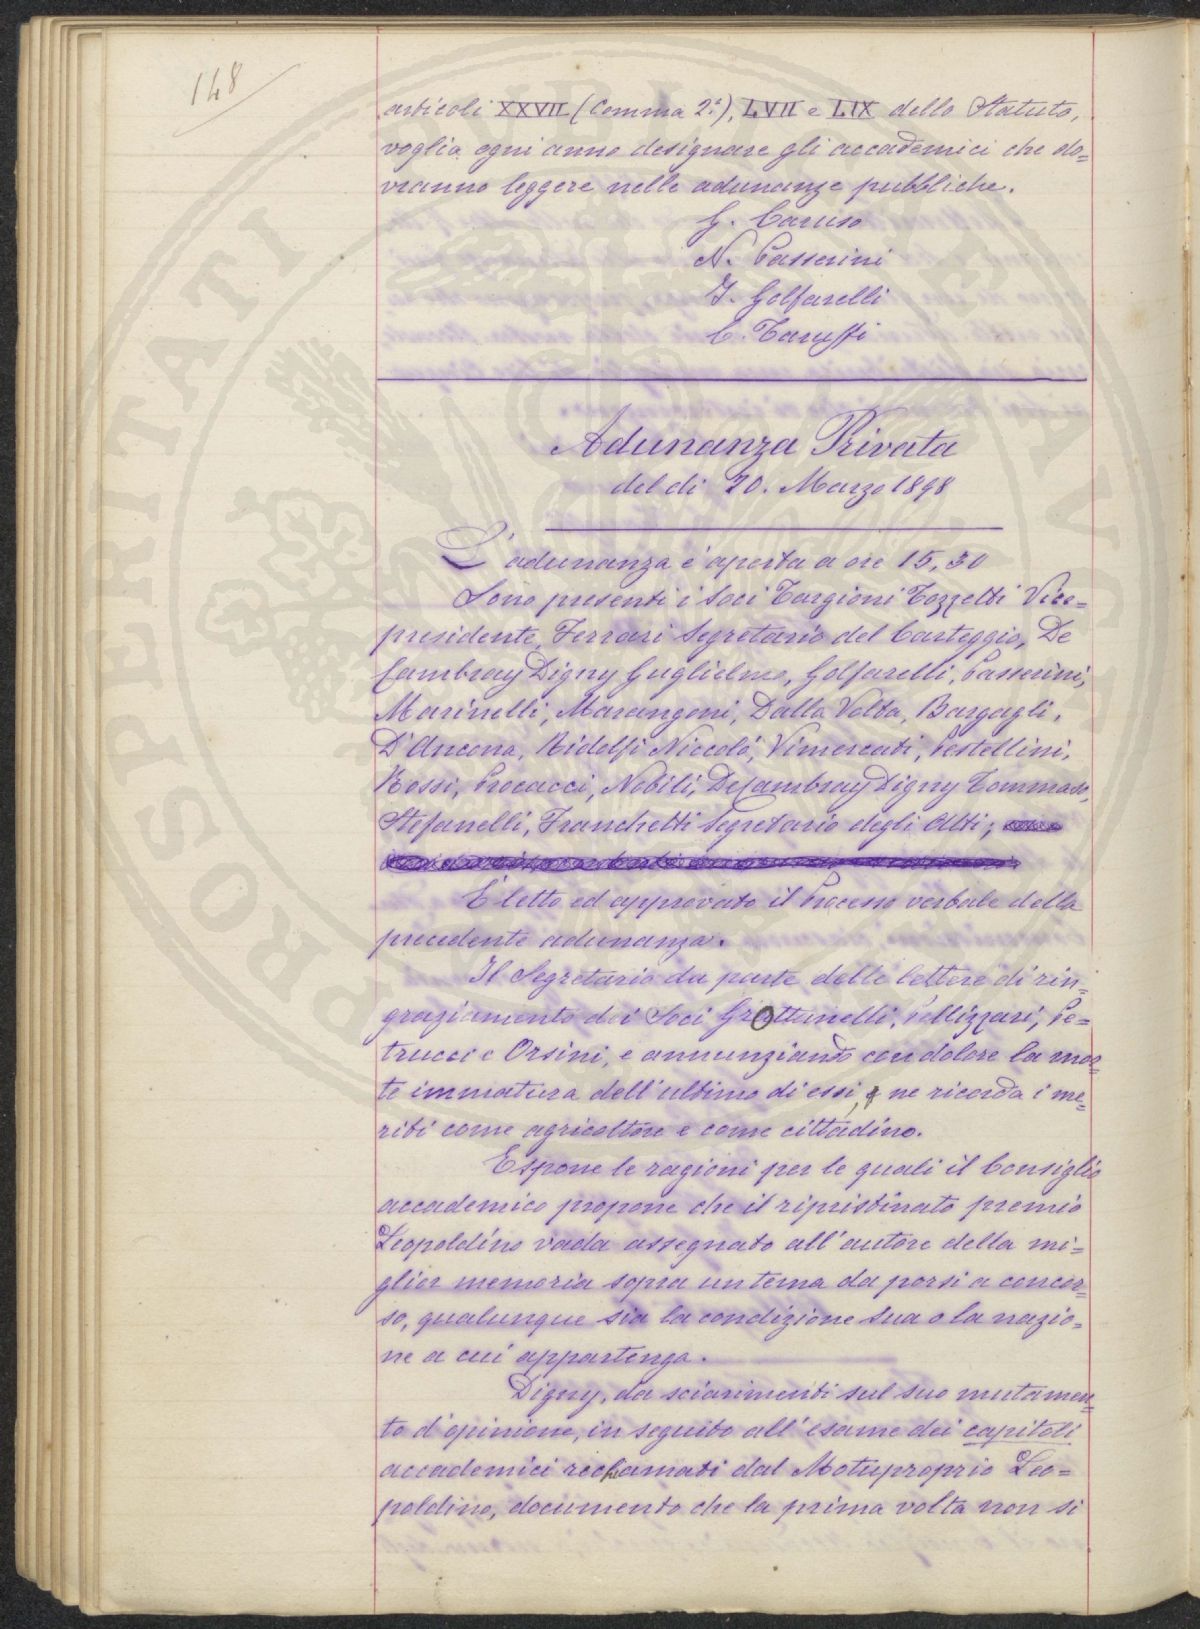 148
articoli XXVII (Comma 2.º), LVII e LIX dello Statuto,
voglia ogni anno designare gli accademici che do=
vranno leggere nelle adunanze pubbliche.
G. Caruso
N. Passerini
I. Golfarelli
C. Taruffi
Adunanza Privata
del dì 20. Marzo 1898
L'adunanza è aperta a ore 15,30
Sono presenti i Soci Targioni Tozzetti Vice=
presidente, Ferrari Segretario del Carteggio, De
Cambray Digny Guglielmo, Golfarelli, Passerini,
Marinelli, Marangoni, Dalla Volta, Bargagli,
D'Ancona, Ridolfi Niccolò, Vimercati, Pestellini,
Rossi, Procacci, Nobili, De Cambray Digny Tommaso,
Stefanelli, Franchetti Segretario degli Atti;
È letto ed approvato il Processo verbale della
precedente adunanza.
Il Segretario da parte delle lettere di rin=
graziamento dei Soci Grottanelli, Pellizzari, Pe=
trucci e Orsini, e annunziando con dolore la mor=
te immatura dell'ultimo di essi, ne ricorda i me=
riti come agricoltore e come cittadino.
Espone le ragioni per le quali il Consiglio
accademico propone che il ripristinato premio
Leopoldino vada assegnato all'autore della mi=
glior memoria sopra un tema da porsi a concor=
so, qualunque sia la condizione sua o la nazio=
ne a cui appartenga.
Digny, da sciarimenti sul suo mutamen=
to d'opinione, in seguito all'esame dei capitoli
accademici richiamati dal Motuproprio Leo=
poldino, documento che la prima volta non si
PROSPERITATI PUBLICAE AUGENDAE